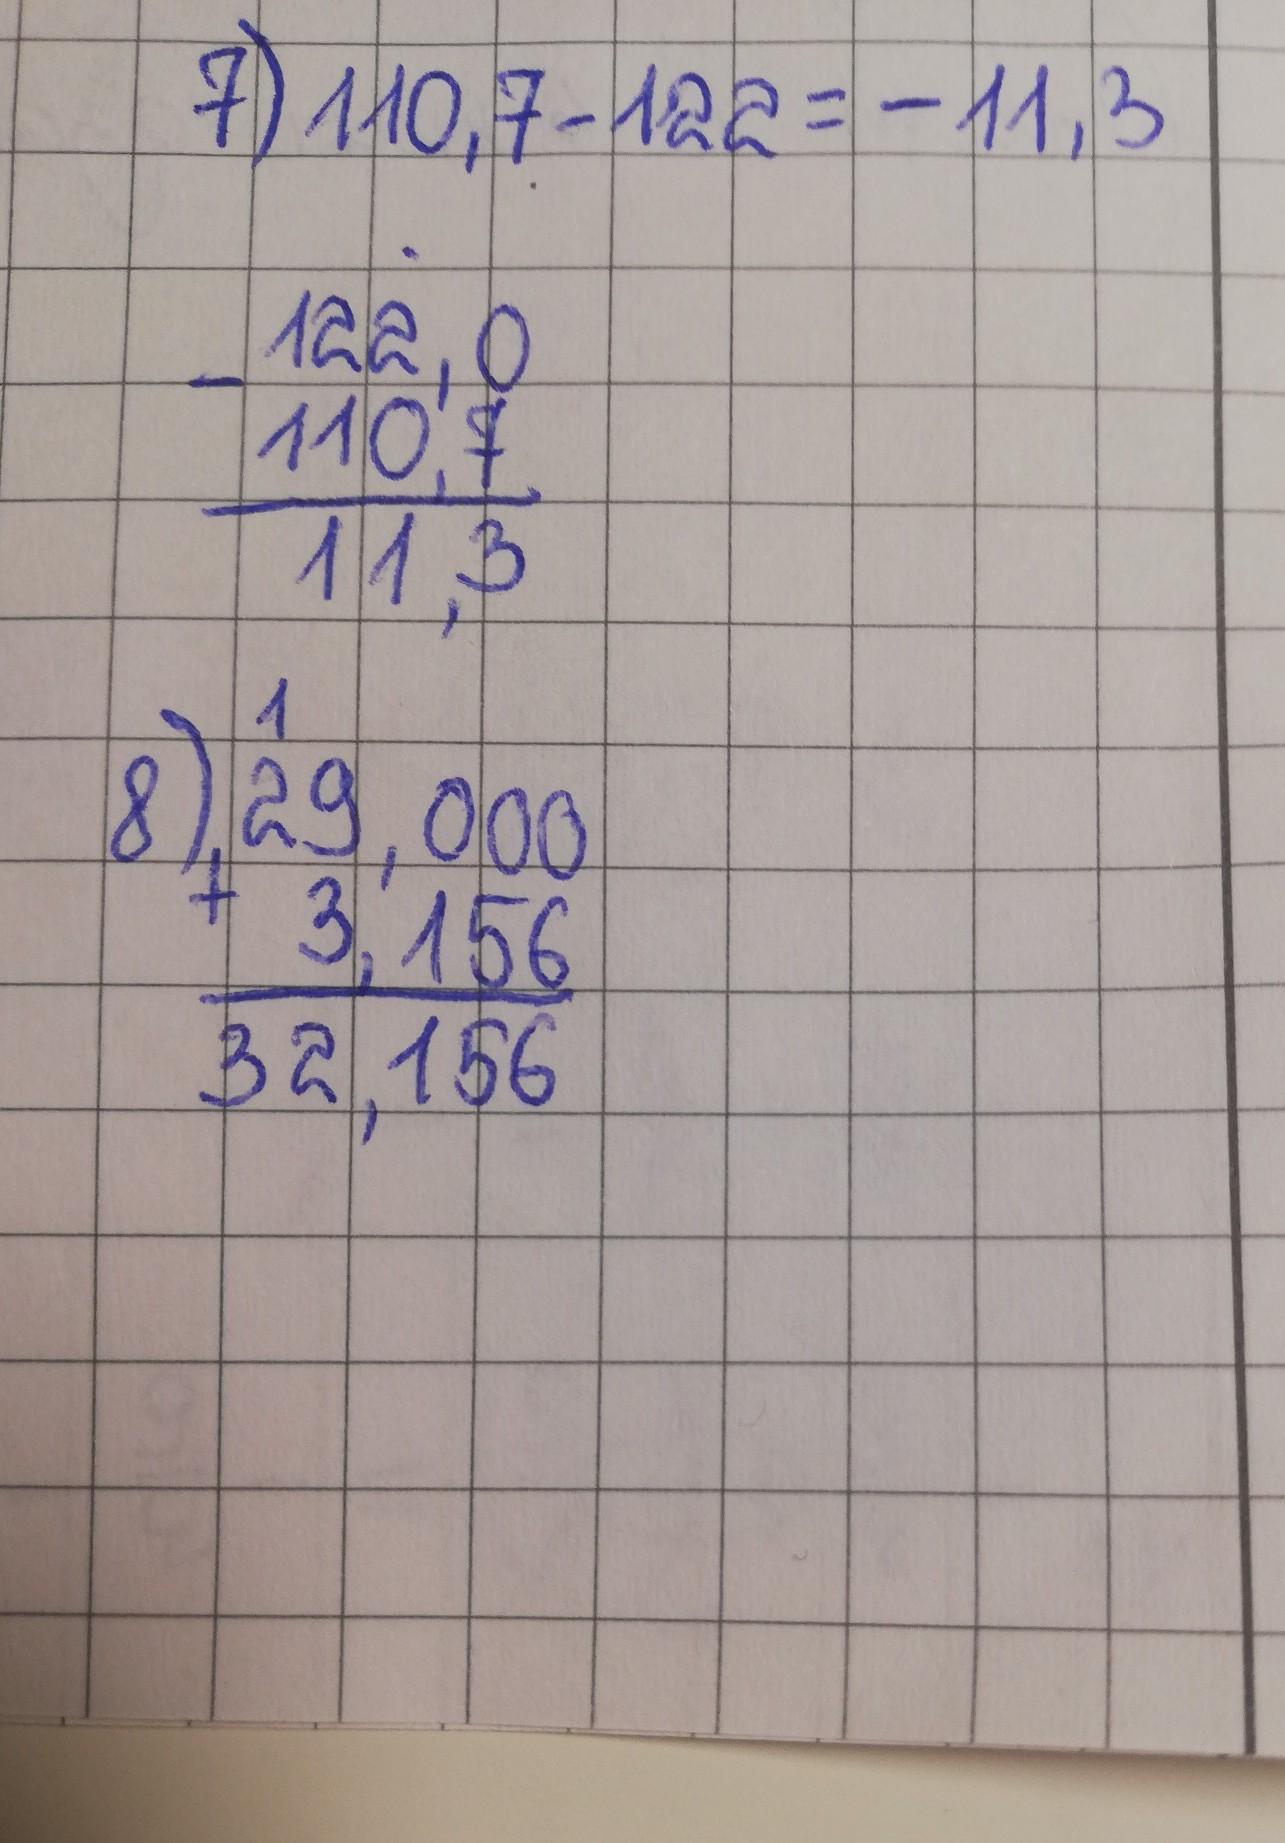 7) 110,7 - 122 = - 11,3
122,0
-
110,7
11,3
1
8) 29,000
+ 3,156
32,156